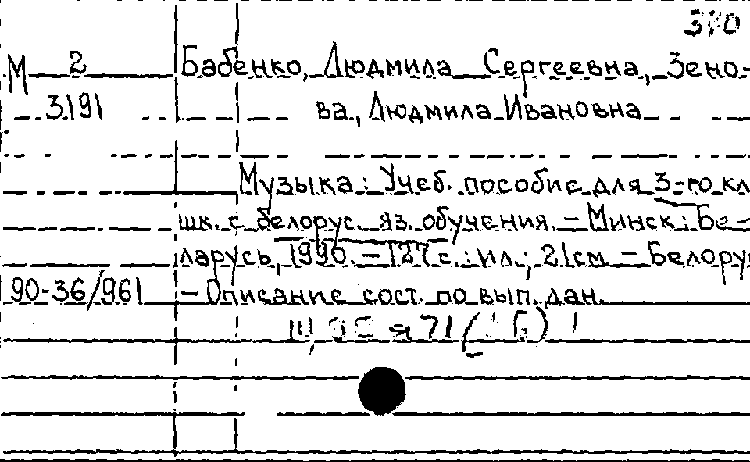 370
М 2 Бабенко, Людмила Сергеевна, Зено-
3191 ва, Людмила Ивановна
Музыка: Учеб. пособие для 3-го кл
шк. с белорус. яз. обучения. - Минск: Бе-
ларусь, 1990. - 127 с.: ил.; 21 см - Белорус
90-36/961 - Описание сост. по вып. дан.